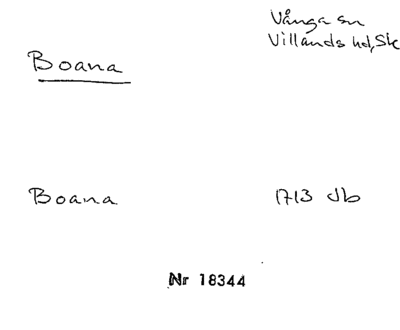 Vånga sn
Villands hd, Sk
Boana
Boana 1713 Jb
Nr 18344